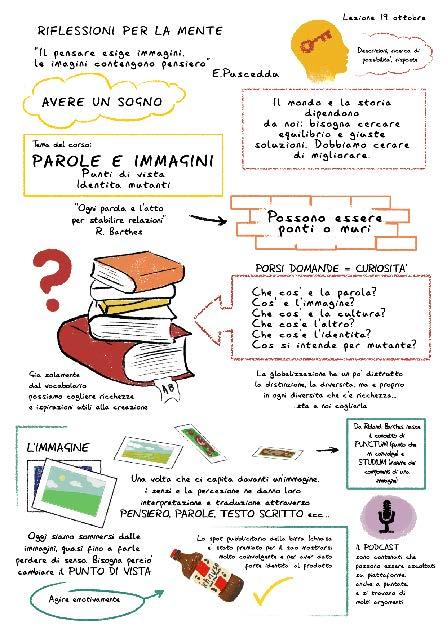 Lezione 19 ottobre
RIFLESSIONI PER LA MENTE
"Il pensare esige immagini,
le imagini contengono pensiero"
E.Pusceddu
Descrizioni, ricerca di
possibilità, risposte
AVERE UN SOGNO
Il mondo e la storia
dipendono
da noi: bisogna cercare
equilibrio e giuste
soluzioni. Dobbiamo cerare
di migliorare.
Tema del corso:
PAROLE E IMMAGINI
Punti di vista
Identita mutanti
"Ogni parola e l'atto
per stabilire relazioni"
R. Barthes
Possono essere
ponti o muri
PORSI DOMANDE = CURIOSITA'
Che cos' e la parola?
Cos' e l'immagine?
Che cos' e la cultura?
Che cos'e l'altro?
Che cos'e l'identita?
Cos si intende per mutante?
?
AB
Gia solamente
dal vocabolario
possiamo cogliere ricchezze
e ispirazioni utili alla creazione
La globalizzazione ha un po' distratto
la distinzione, la diversita, ma e proprio
in ogni diversita che c'e ricchezza...
sta a noi coglierla
L'IMMAGINE
Da Roland Barthes nasce
il concetto di
PUNCTUM (punto che
mi coinvolge) e
STUDIUM (
componenti di una
immagine)
Una volta che ci capita davanti un'immagine,
i sensi e la percezione ne danno loro
interpretazione e traduzione attraverso
PENSIERO, PAROLE, TESTO SCRITTO ecc...
Oggi siamo sommersi dalle
immagini, quasi fino a farle
perdere di senso. Bisogna percio'
cambiare il PUNTO DI VISTA
Agire emotivamente
Lo spot pubblicitario della birra Ichnusa
e stato premiato per il suo mostrarsi
molto coinvolgente e per aver dato
forte identita al prodotto
Il PODCAST
sono contenuti che
possono essere ascoltati
su piattaforme
anche a puntate
e si trovano di
molti argomenti